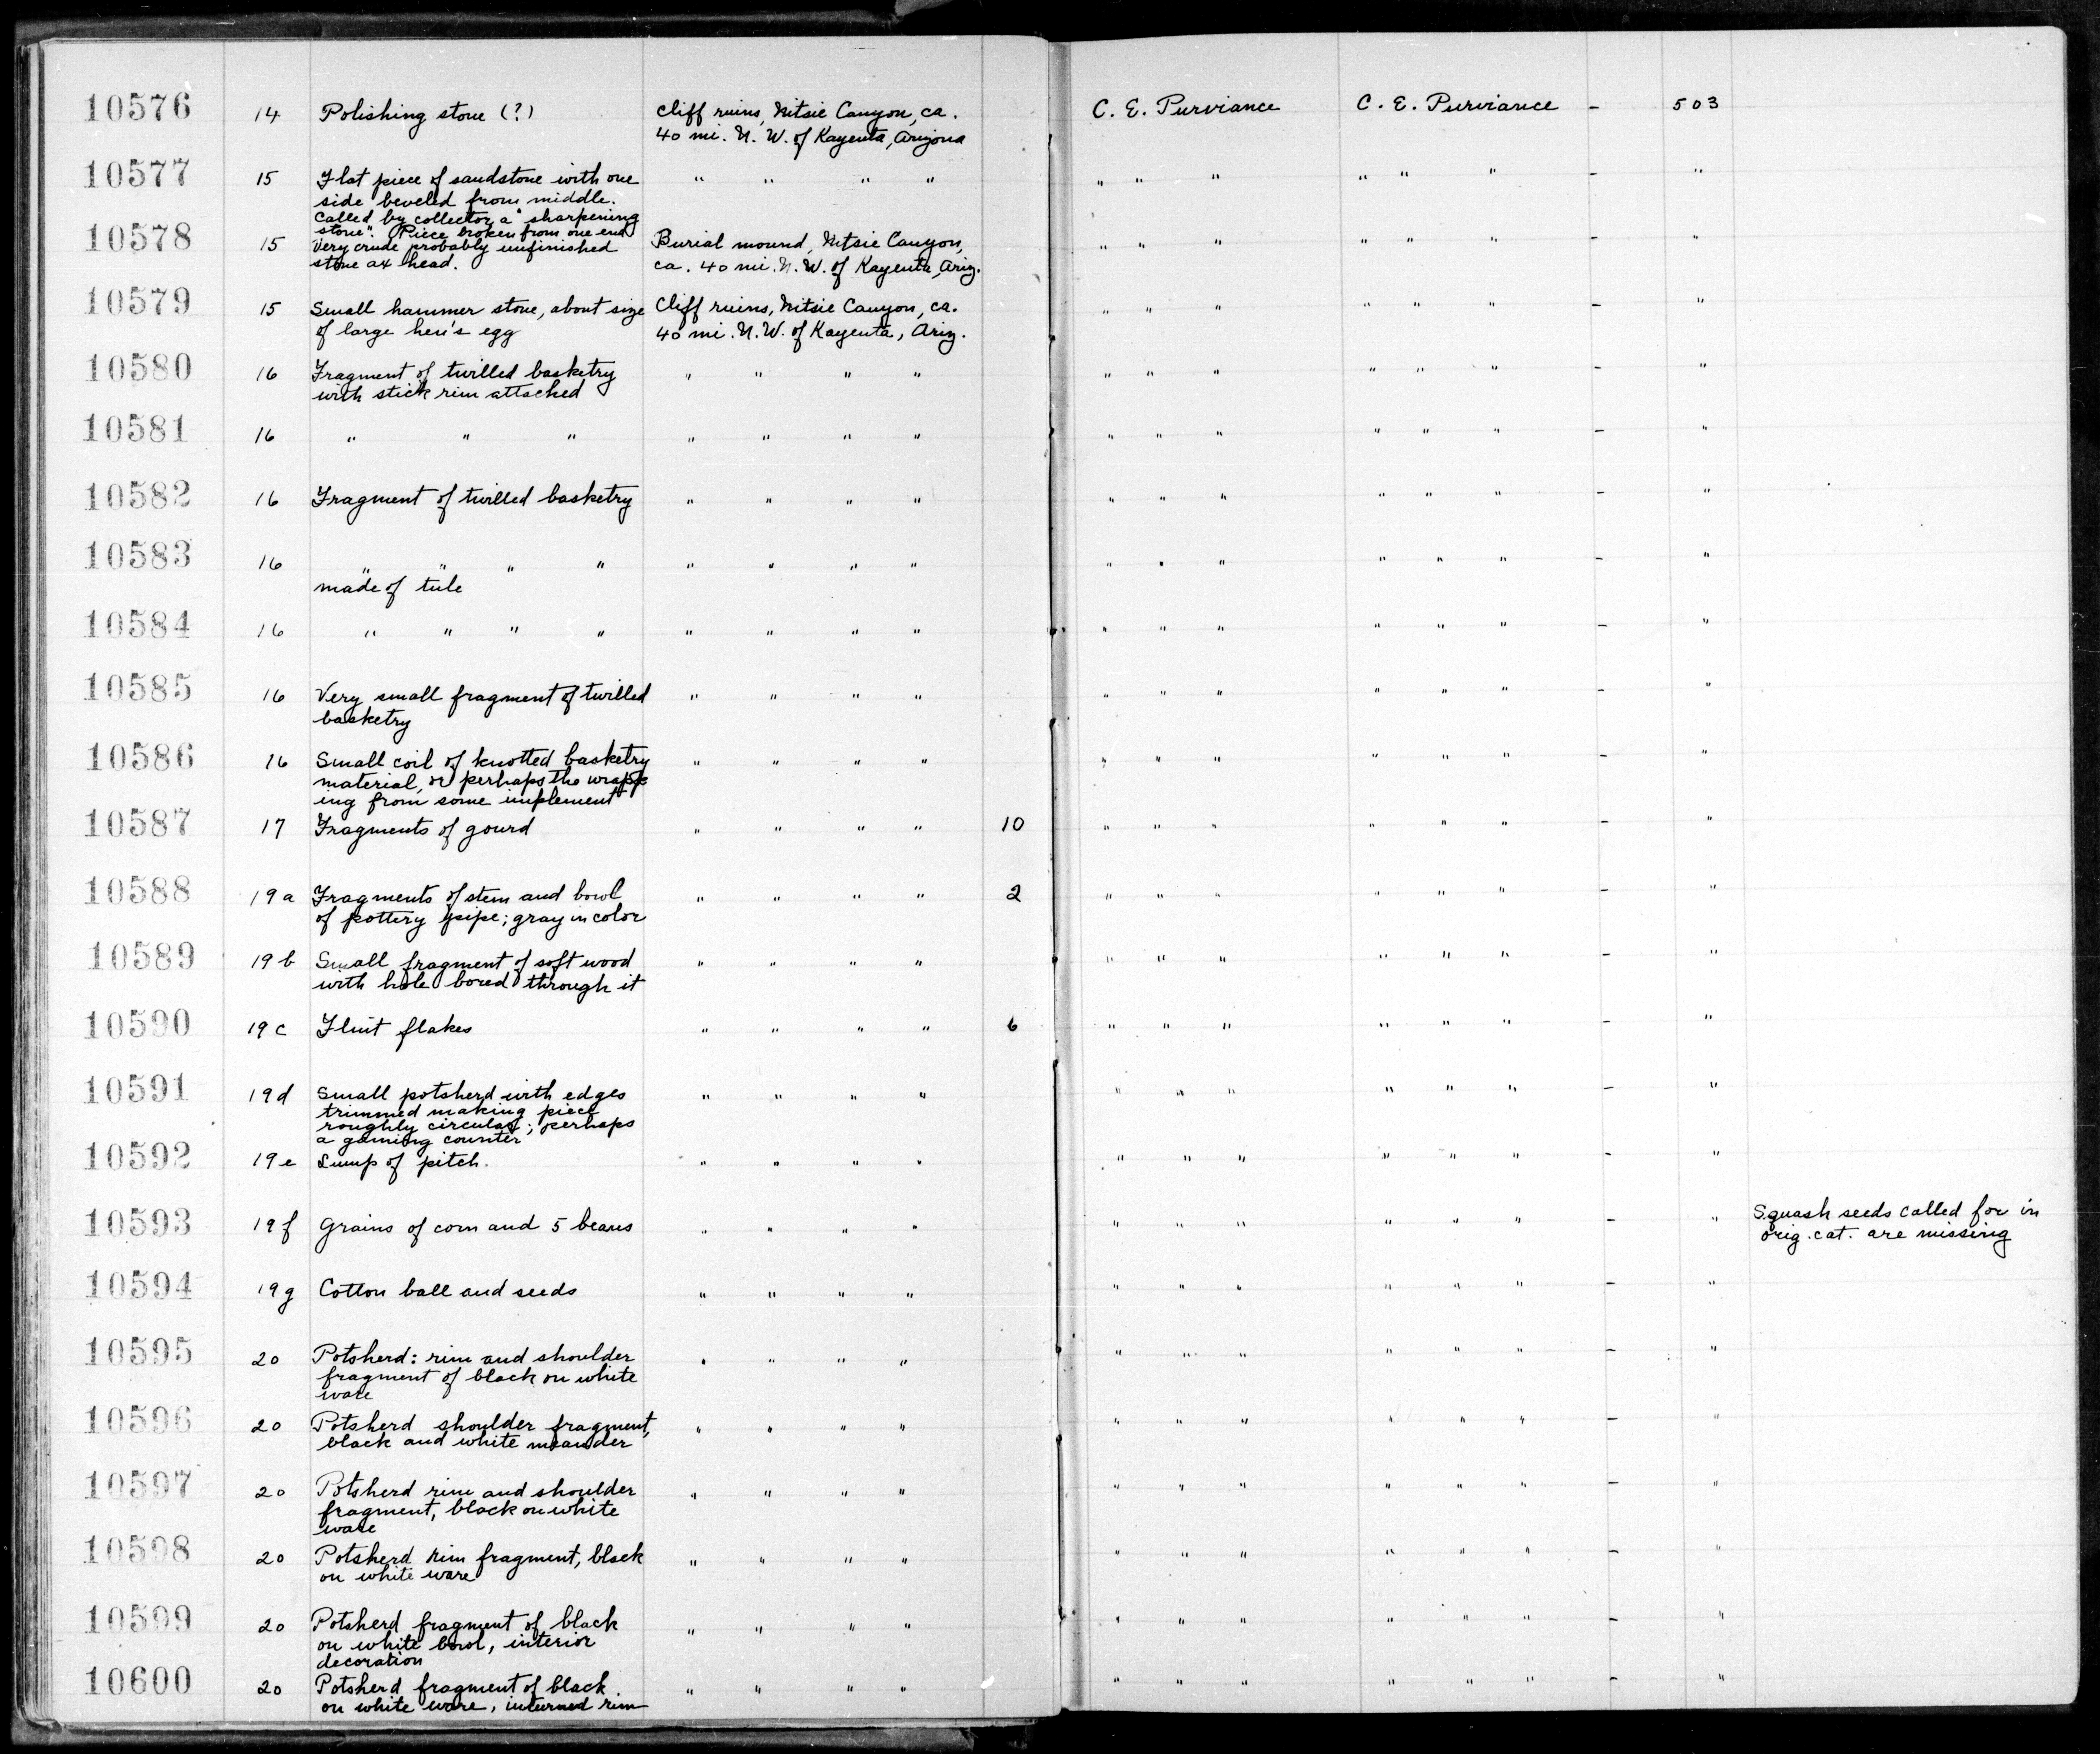 10576 14 Polishing stone (?) Cliff ruins, Nitsie Canyon, ca. C. E. Purviance C. E. Purviance - 503
40 mi. N. W. of Kayenta, Arizona
10577 15 Flat piece of sandstone with one " " " " " " " " " " - "
side beveled from middle.
Called by collector a "sharpening
stone". (Piece broken from one end)
10578 15 Very crude probably unfinished Burial mound, Nitsie Canyon, " " " " " " - "
stone ax head. ca. 40 mi. N. W. of Kayenta, Ariz.
10579 15 Small hammer stone, about size Cliff ruins, Nitsie Canyon, ca. " " " " " " - "
of large hen's egg 40 mi. N. W. of Kayenta, Ariz.
10580 16 Fragment of twilled basketry " " " " " " " " " " - "
with stick rim attached
10581 16 " " " " " " " " " " " " " - "
10582 16 Fragment of twilled basketry " " " " " " " " " " - "
10583 16 " " " " " " " " " " " " " " - "
made of tule
10584 16 " " " " " " " " " " " " " " - "
10585 16 Very small fragment of twilled " " " " " " " " " " - "
basketry
10586 16 Small coil of knotted basketry " " " " " " " " " " - "
material, or perhaps the wrapp-
ing from some implement
10587 17 Fragments of gourd " " " " 10 " " " " " " - "
10588 19a Fragments of stem and bowl " " " " 2 " " " " " " - "
of pottery pipe; gray in color
10589 19b Small fragment of soft wood " " " " " " " " " " - "
with hole bored through it
10590 19c Flint flakes " " " " 6 " " " " " " - "
10591 19d Small potsherd with edges " " " " " " " " " " - "
trimmed making piece
roughly circular; perhaps
a gaming counter
10592 19e Lump of pitch. " " " " " " " " " " - "
10593 19f Grains of corn and 5 beans " " " " " " " " " " - " Squash seeds called for in
orig. cat. are missing
10594 19g Cotton ball and seeds " " " " " " " " " " - "
10595 20 Potsherd: rim and shoulder " " " " " " " " " " - "
fragment of black on white
ware
10596 20 Potsherd shoulder fragment, " " " " " " " " " " - "
black and white meander
10597 20 Potsherd rim and shoulder " " " " " " " " " " - "
fragment, black on white
ware
10598 20 Potsherd rim fragment, black " " " " " " " " " " - "
on white ware
10599 20 Potsherd fragment of black " " " " " " " " " " - "
on white bowl, interior
decoration
10600 20 Potsherd fragment of black " " " " " " " " " " - "
on white ware, inturned rim